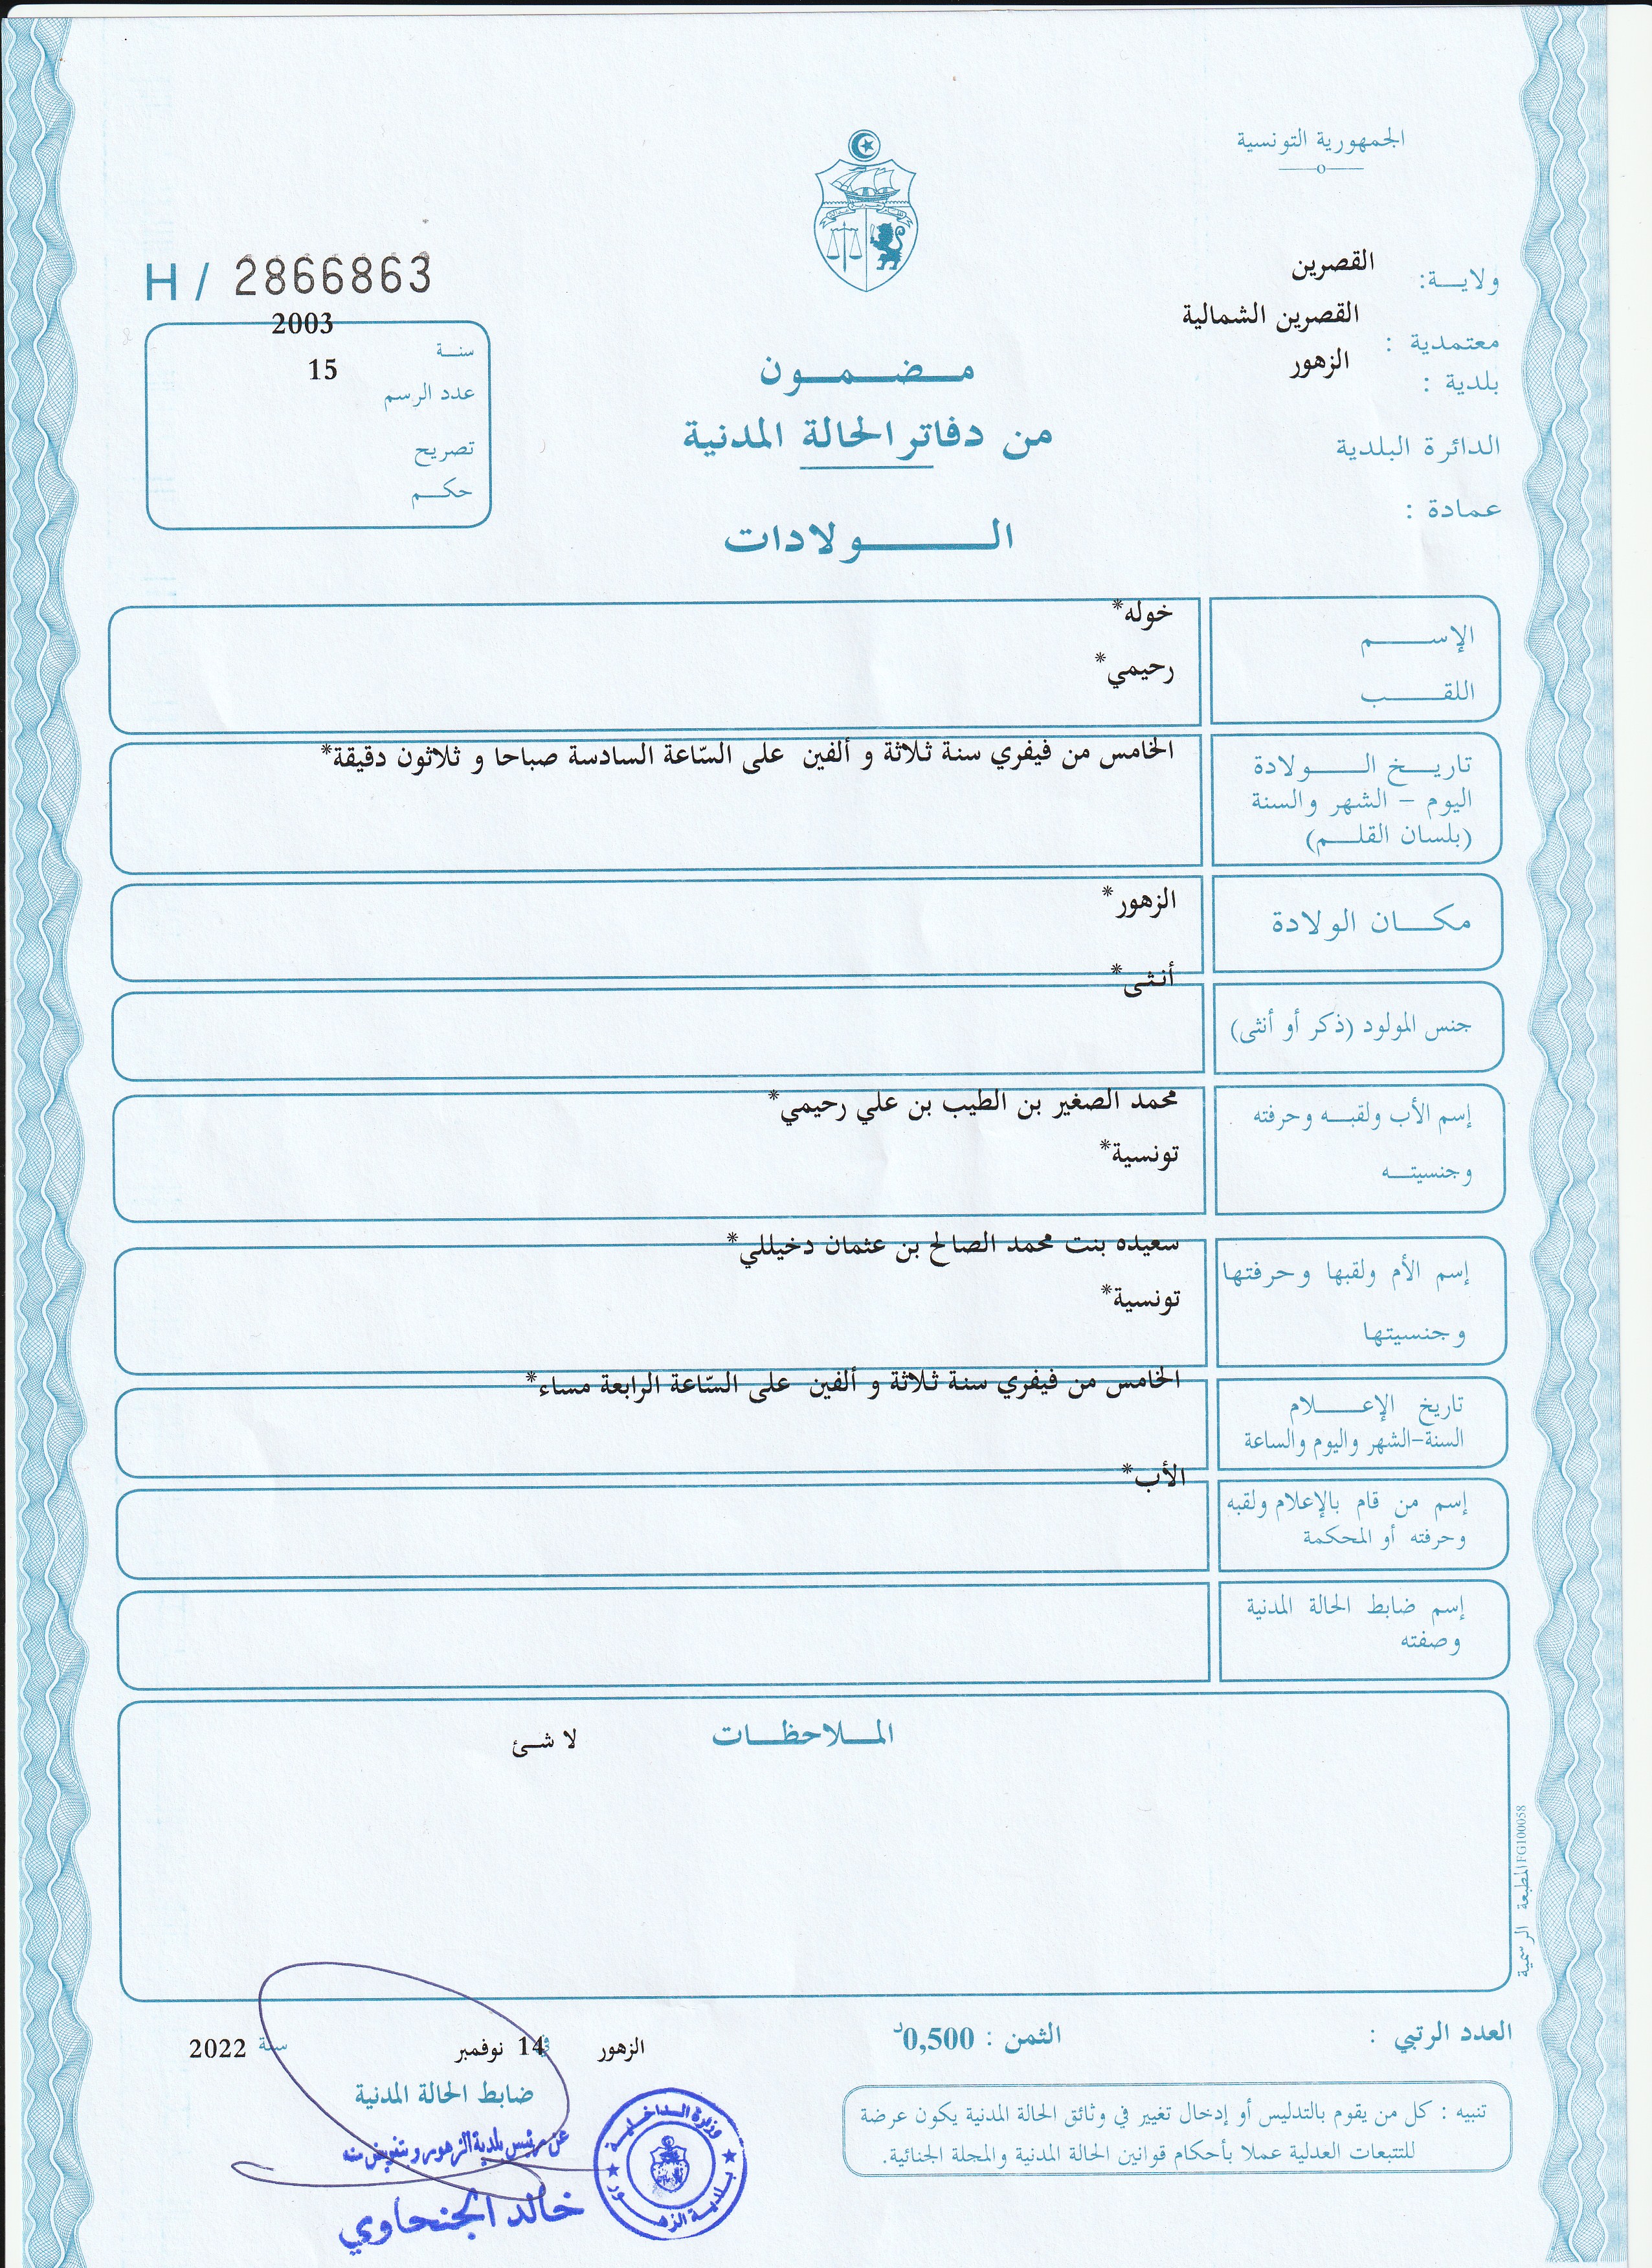 الجمهورية التونسية
ولايـــة: القصرين
معتمدية : القصرين الشمالية
بلدية : الزهور
الدائرة البلدية
عمادة :
H / 2866863
سنة 2003
عدد الرسم 15
تصريح
حكم
مضمون
من دفاتر الحالة المدنية
الولادات
الإسم خوله*
اللقب رحيمي*
تاريخ الولادة
اليوم – الشهر والسنة
(بلسان القلم)
الخامس من فيفري سنة ثلاثة و ألفين على السّاعة السادسة صباحا و ثلاثون دقيقة*
مكان الولادة
الزهور*
جنس المولود (ذكر أو أنثى)
أنثى*
إسم الأب ولقبه وحرفته
وجنسيته
محمد الصغير بن الطيب بن علي رحيمي*
تونسية*
إسم الأم ولقبها وحرفتها
وجنسيتها
سعيده بنت محمد الصالح بن عثمان دخيللي*
تونسية*
تاريخ الإعلام
السنة-الشهر واليوم والساعة
الخامس من فيفري سنة ثلاثة و ألفين على السّاعة الرابعة مساء*
إسم من قام بالإعلام ولقبه
وحرفته أو المحكمة
الأب*
إسم ضابط الحالة المدنية
وصفته
الملاحظات
لا شئ
المطبعة الرسمية FG100058
العدد الرتبي :
الثمن : 0,500د
الزهور في 14 نوفمبر سنة 2022
ضابط الحالة المدنية
عن رئيس بلدية الزهور و بتفويض منه
خالد الجنحاوي
وزارة الداخلية
بلدية الزهور
تنبيه : كل من يقوم بالتدليس أو إدخال تغيير في وثائق الحالة المدنية يكون عرضة
للتتبعات العدلية عملا بأحكام قوانين الحالة المدنية والمجلة الجنائية.